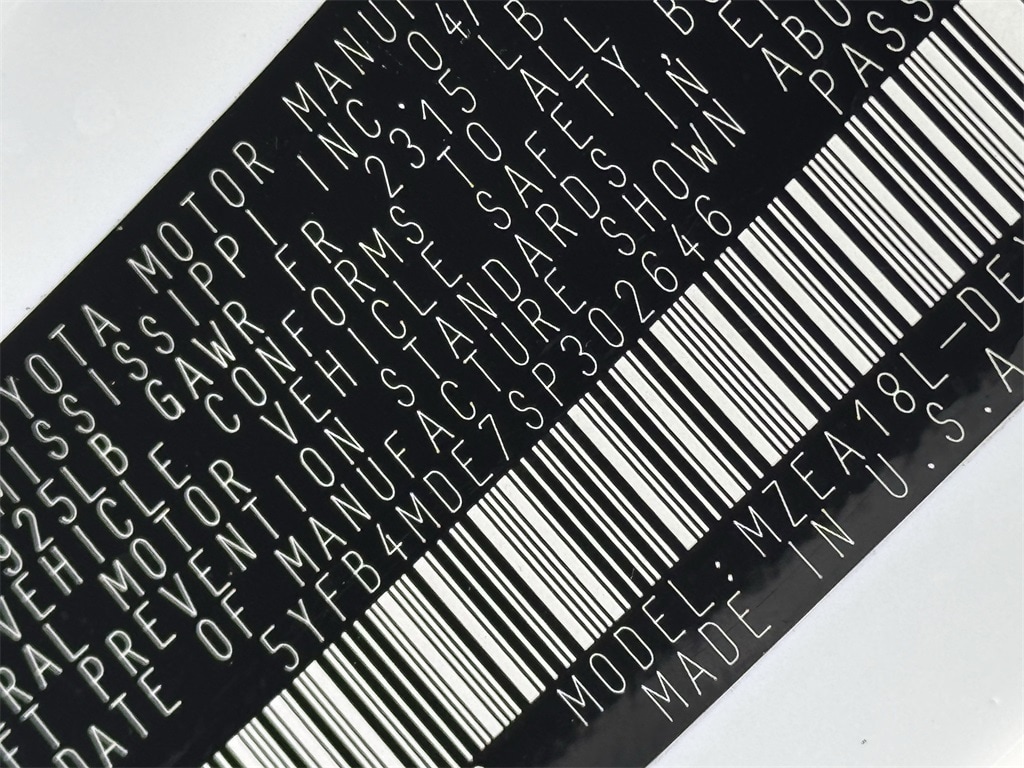 YOTA MOTOR MANU
MISSISSIPPI INC. 04/
925LB GAWR FR 2315 LB
VEHICLE CONFORMS TO ALL
RAL MOTOR VEHICLE SAFETY, B
FT PREVENTION STANDARDS IN E
DATE OF MANUFACTURE SHOWN ABO
5YFB4MDE7SP302646 PASS
MODEL: MZEA18L-DE
MADE IN U.S.A